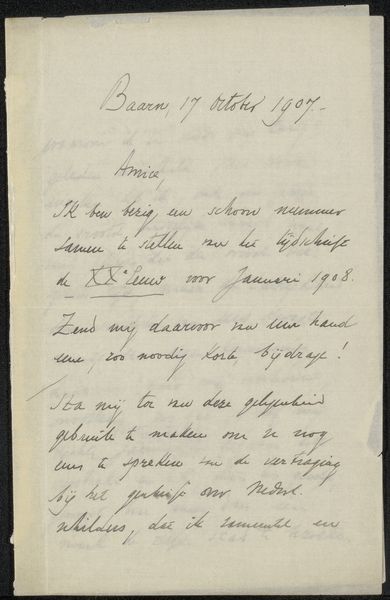 Baarn, 17 October 1907.-
Amice,
Ik ben bezig, een schoon nummer
samen te stellen van het tijdschrift
de XXe Eeuw voor Januari 1908.
Zend mij daarvoor van uw hand
eene, zoo noodig korte bijdrage!
Sta mij toe van deze gelegenheid
gebruik te maken om u nog
eens te spreken van de vertraging
bij het geschrift over Nederl.
schilders, dat ik en